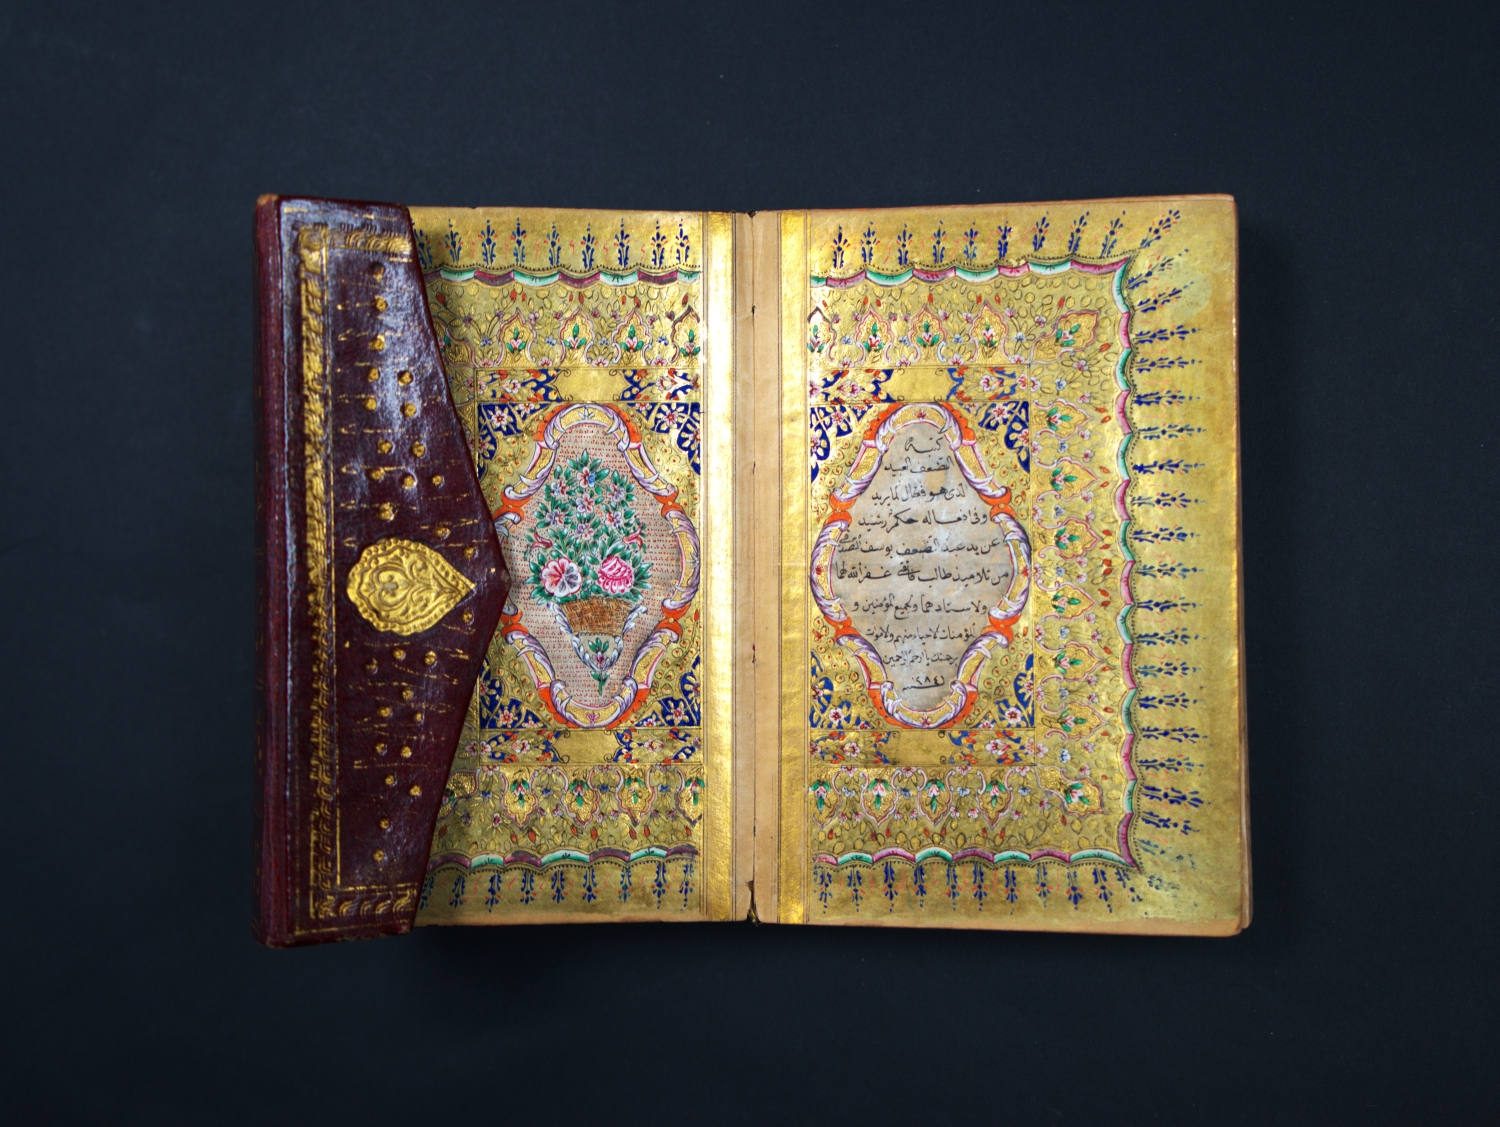 كتبه
اضعف العبيد
لذى هو فعّال لما يريد
وفى افعاله حكم رشيد
عن يد عبد الضعف يوسف
من تلاميذ طالب غفر الله لهما
ولاستادهما ولجميع المؤمنين و
المؤمنات الاحياء منهم والاموت
برحمتك يا ارحم الراحمين